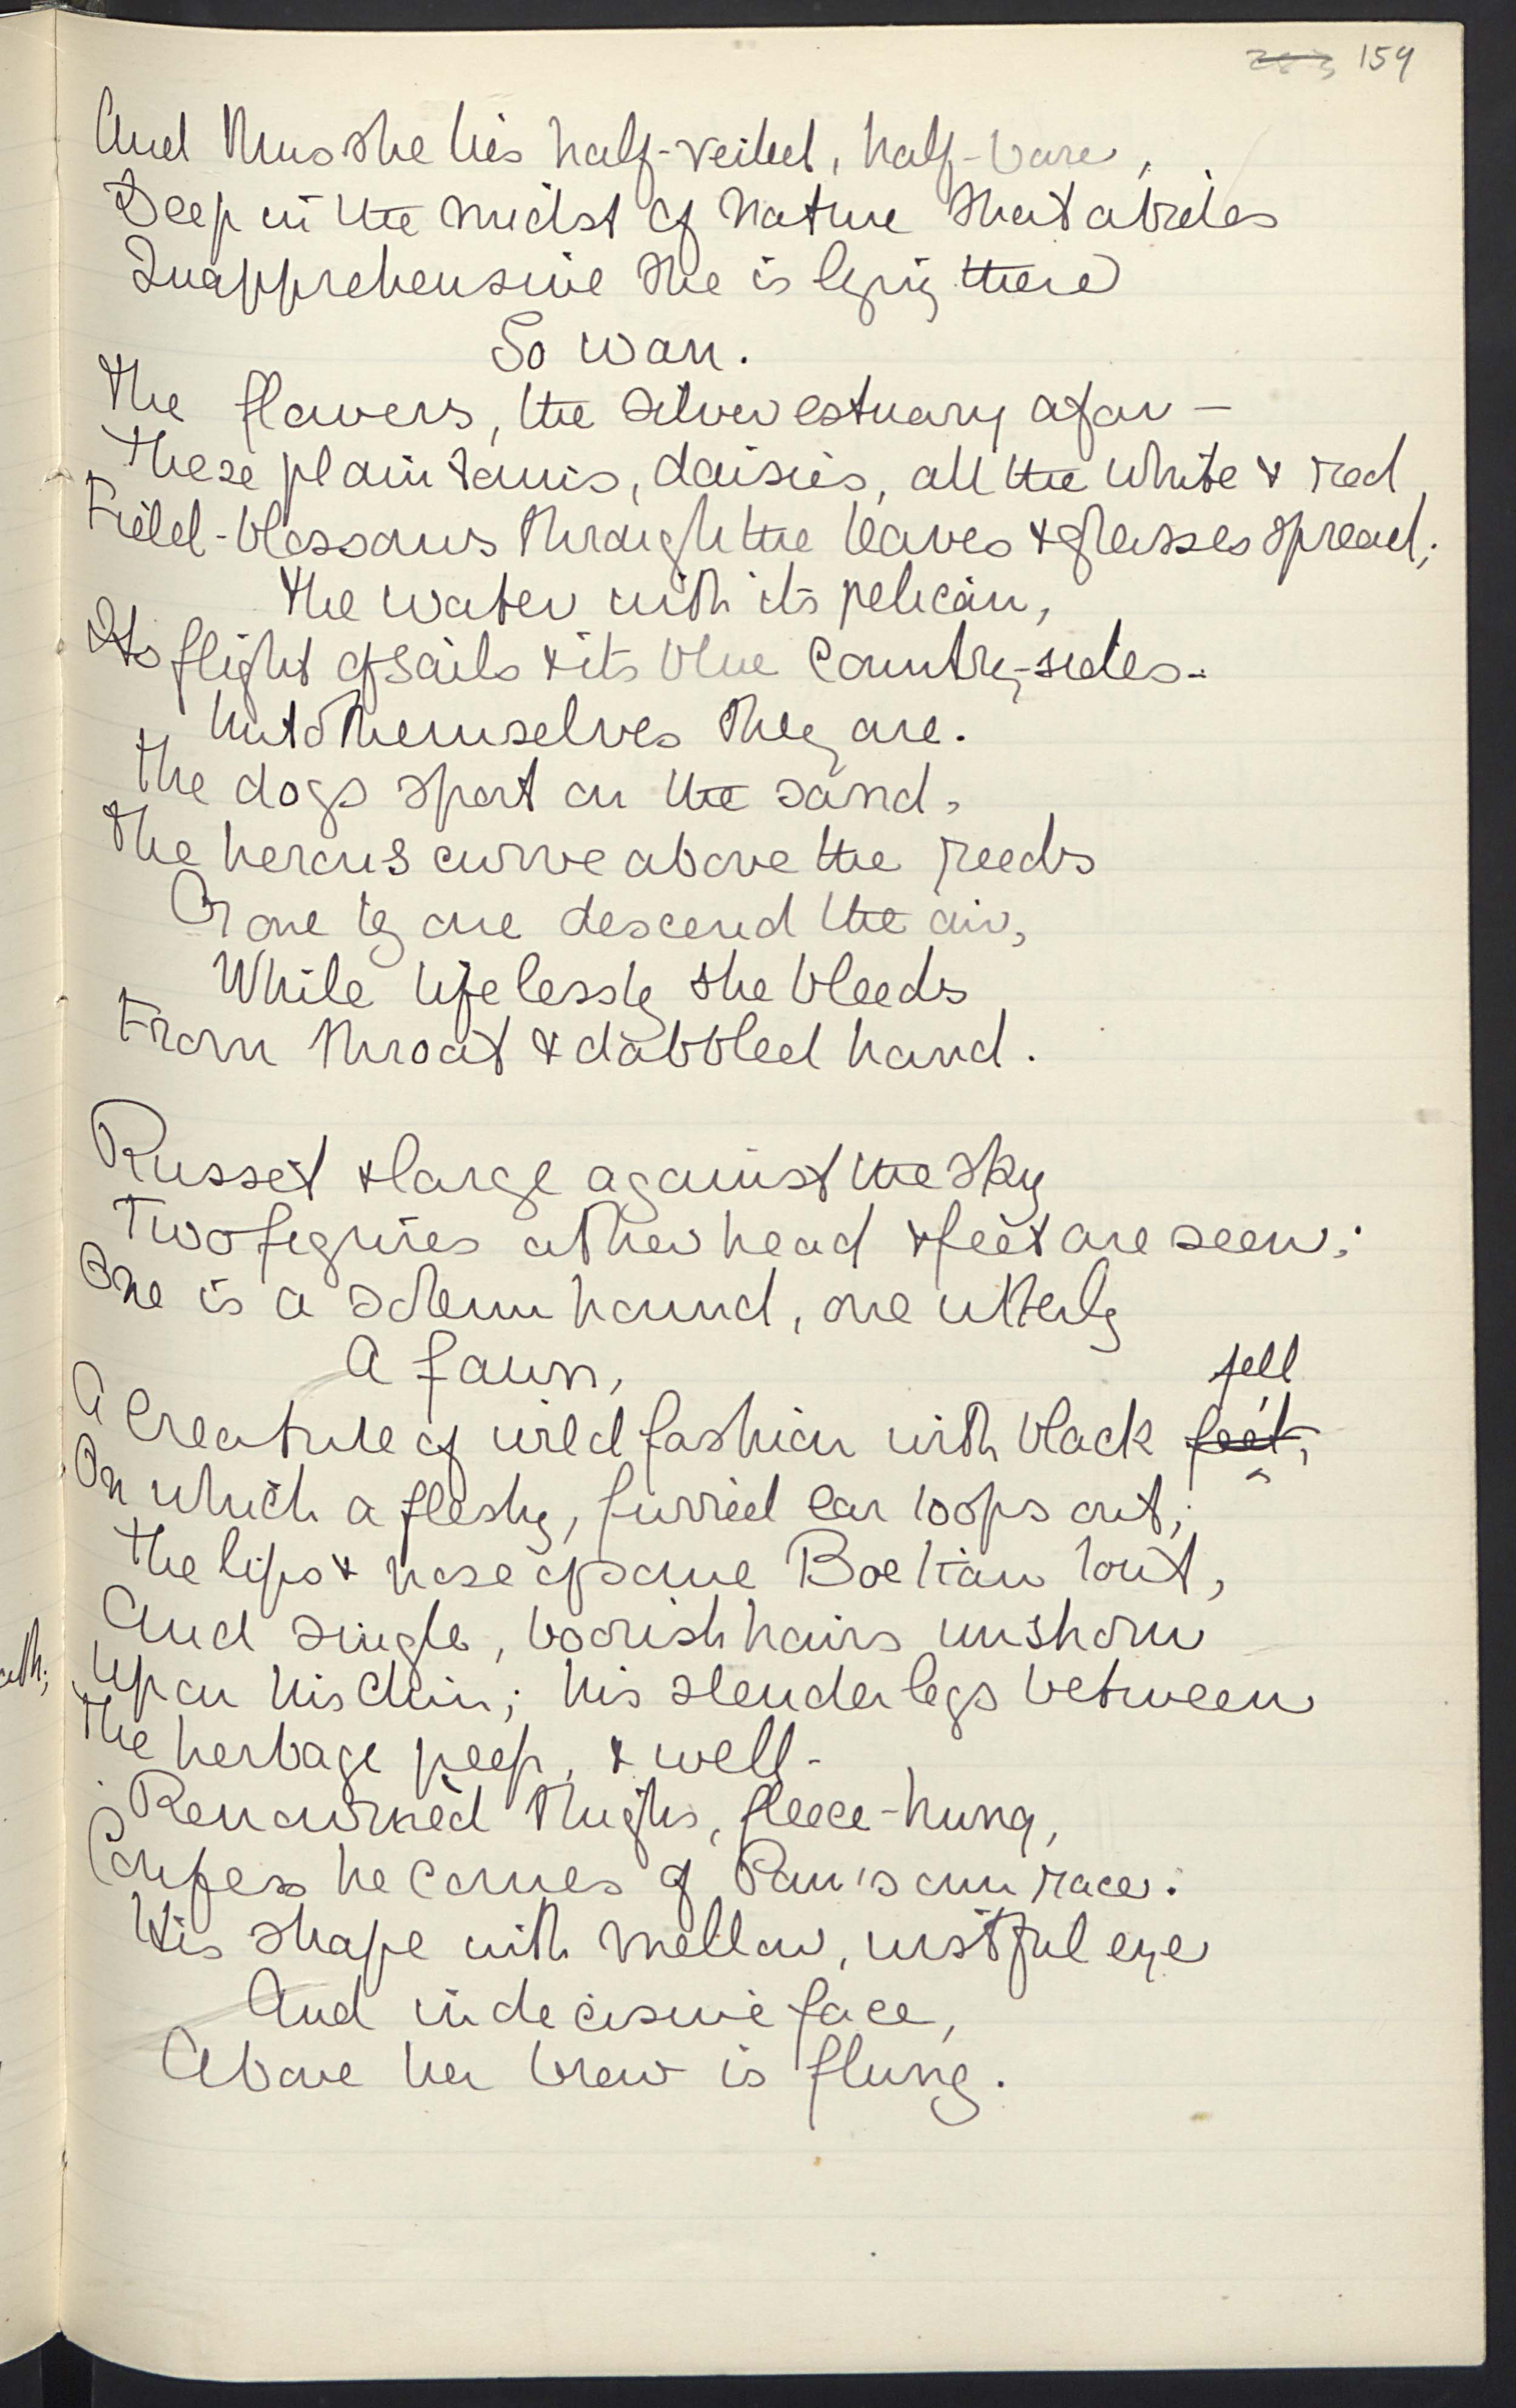 283 159
And thus she lies half-veiled, half-bare,
Deep in the midst of nature that abides
Inapprehensive she is lying there
So wan.
The flowers, the silver estuary afar —
These plaintains, daisies, all the white & red
Field-blossoms through the leaves & grasses spread;
The water with its pelican,
Its flight of sails & its blue country-sides —
Unto themselves they are.
The dogs sport on the sand,
The herons curve above the reeds
Or one by one descend the air,
While lifelessly she bleeds
From throat & dabbled hand.
Russet & large against the sky
Two figures at her head & feet are seen;
One is a solemn hound, one utterly
A faun,
fell
A creature of wild fashion with black feet,
On which a fleshy, furried ear loops out;
The lips & nose of some Boetian lout,
And single, boorish hairs unshorn
Upon his chin; his slender legs between
The herbage peep, & well-
Renowned thighs, fleece-hung,
Confess he comes of Pan's own race:
His shape with mellow, wistful eye
And indecisive face,
Above her brow is flung.